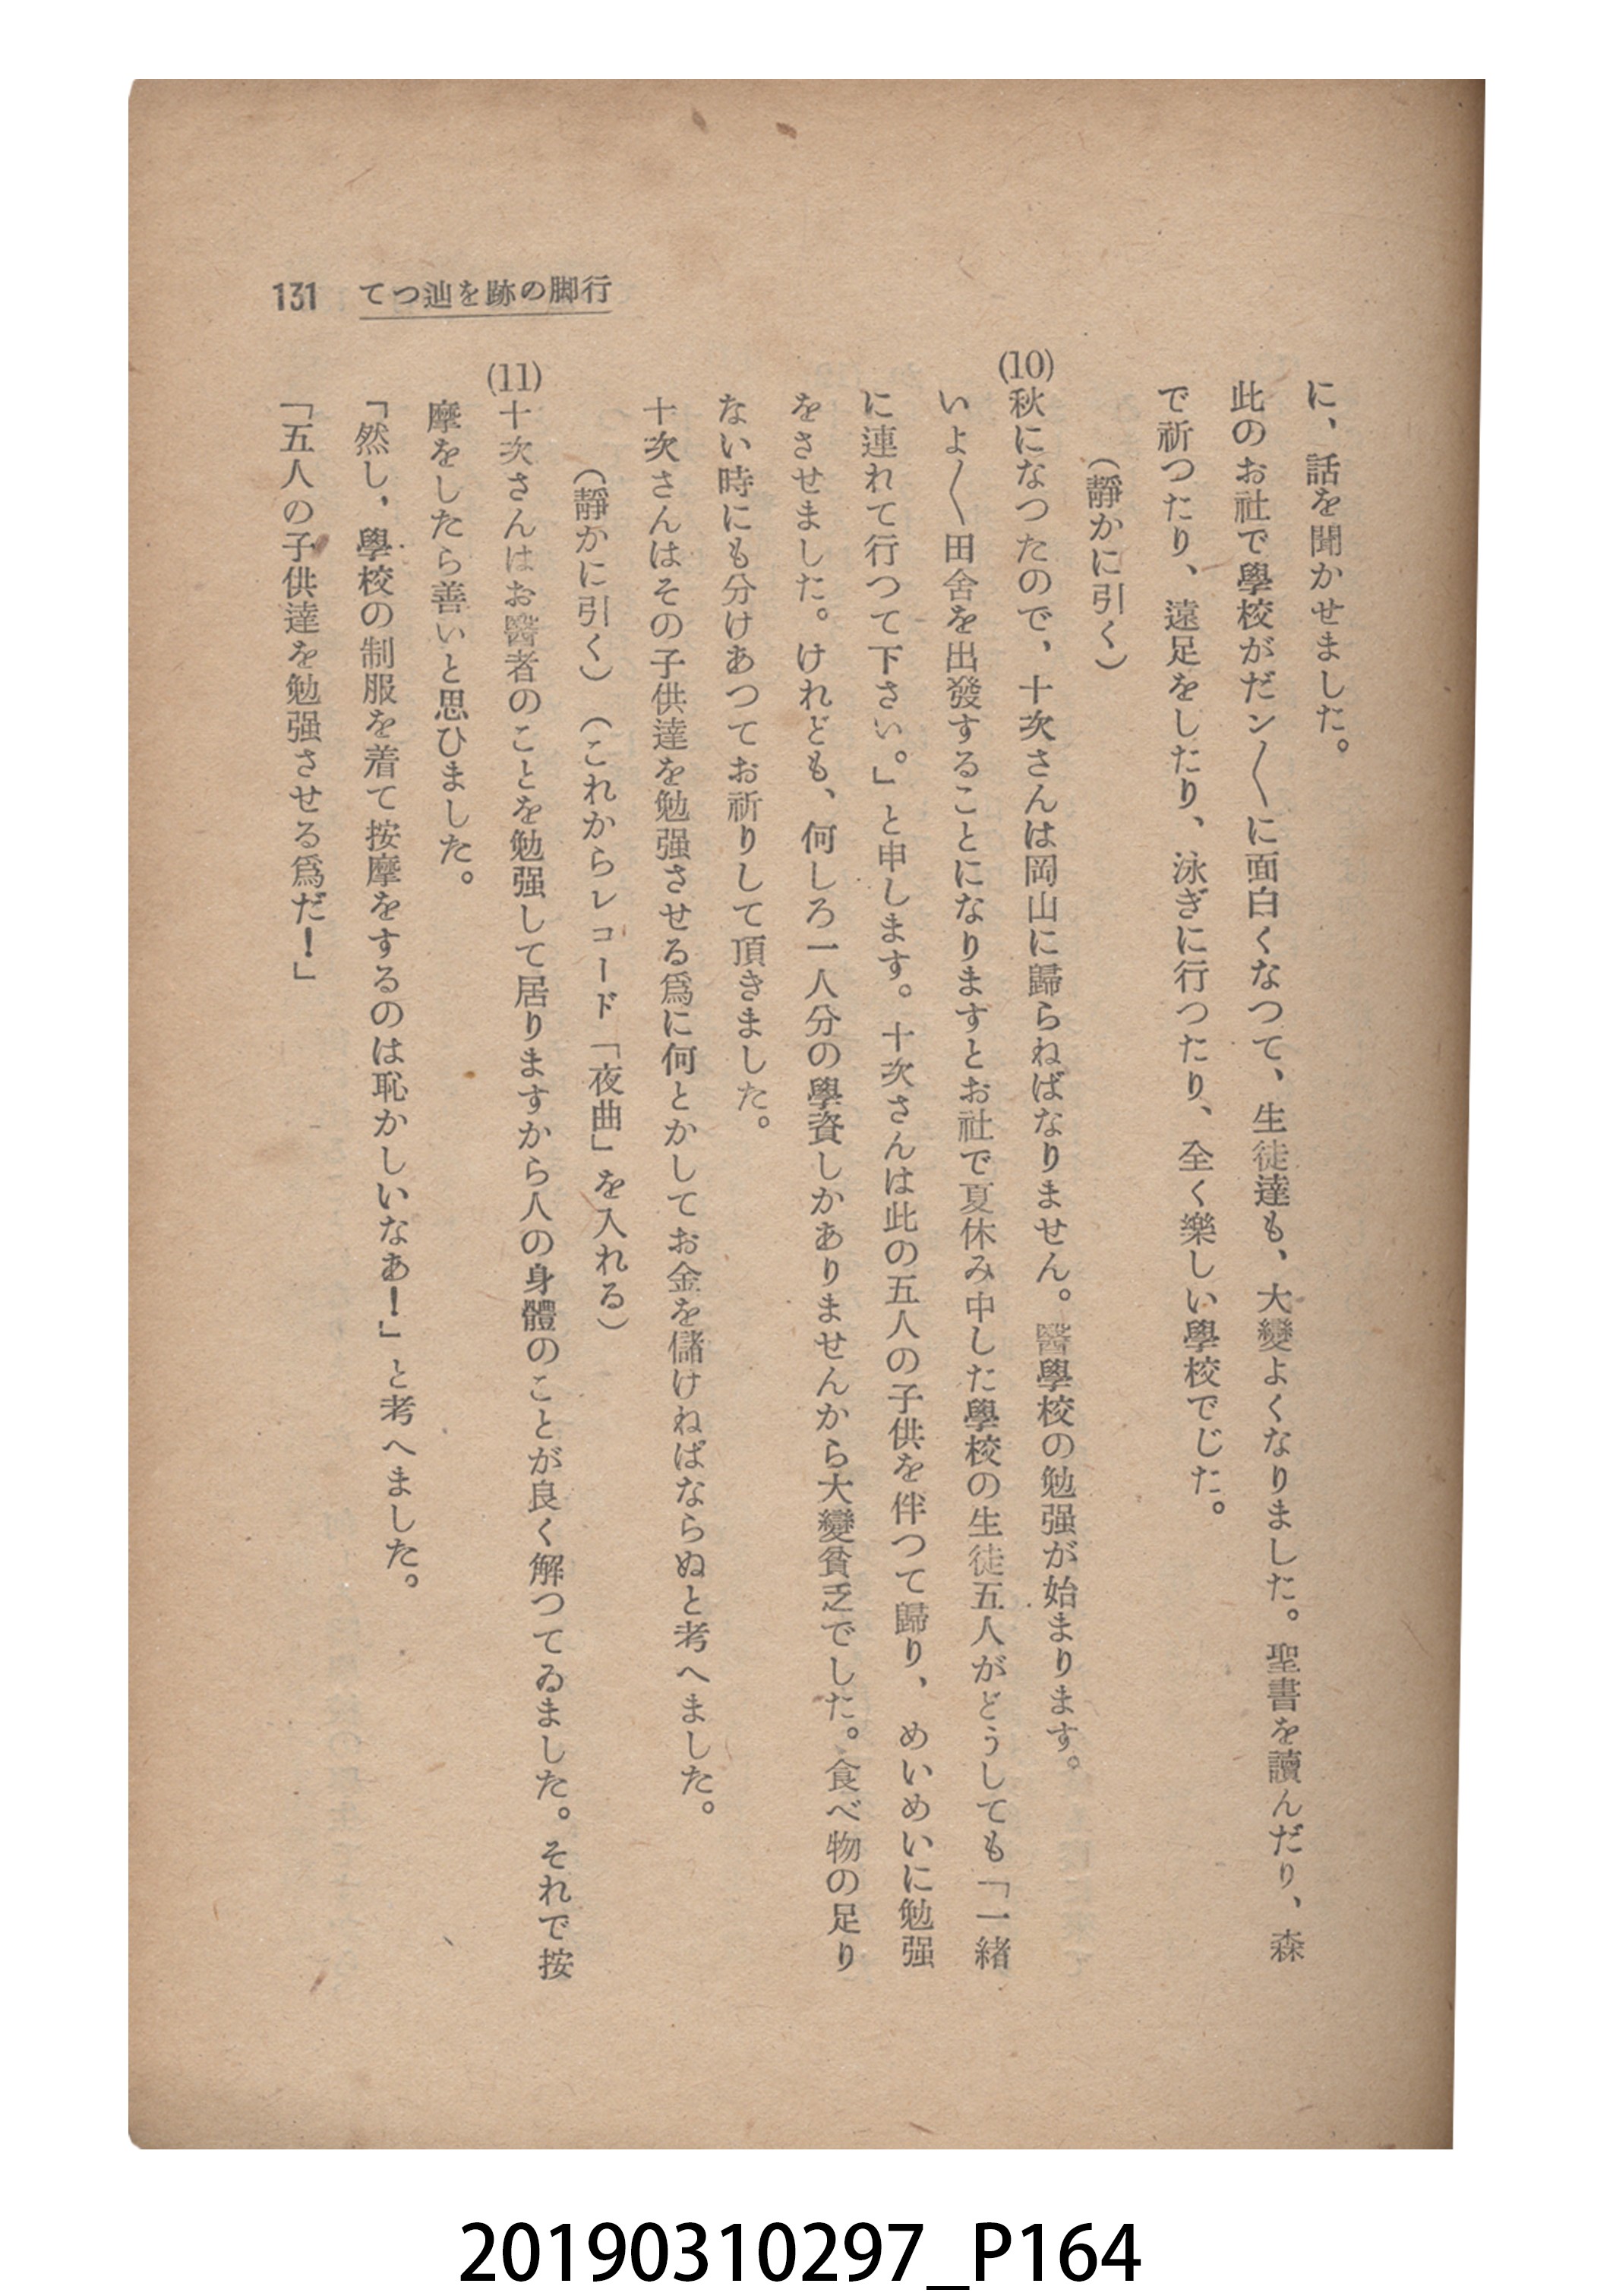 131 てつ辿を跡の脚行
に、話を聞かせました。
此のお社で學校がだン〱に面白くなつて、生徒達も、大變よくなりました。聖書を讀んだり、森
で祈つたり、遠足をしたり、泳ぎに行つたり、全く樂しい學校でじた。
(靜かに引く)
(10)秋になつたので、十次さんは岡山に歸らねばなりません。醫學校の勉强が始まります。
いよ〱田舍を出發することになりますとお社で夏休み中した學校の生徒五人がどうしても「一緖
に連れて行つて下さい。」と申します。十次さんは此の五人の子供を伴つて歸り、めいめいに勉强
をさせました。けれども、何しろ一人分の學資しかありませんから大變貧乏でした。食べ物の足り
ない時にも分けあつてお祈りして頂きました。
十次さんはその子供達を勉强させる爲に何とかしてお金を儲けねばならぬと考へました。
(靜かに引く)(これからレコード「夜曲」を入れる)
(11)十次さんはお醫者のことを勉强して居りますから人の身體のことが良く解つてゐました。それで按
摩をしたら善いと思ひました。
「然し，學校の制服を着て按摩をするのは恥かしいなあ！」と考へました。
「五人の子供達を勉强させる爲だ！」
20190310297_P164